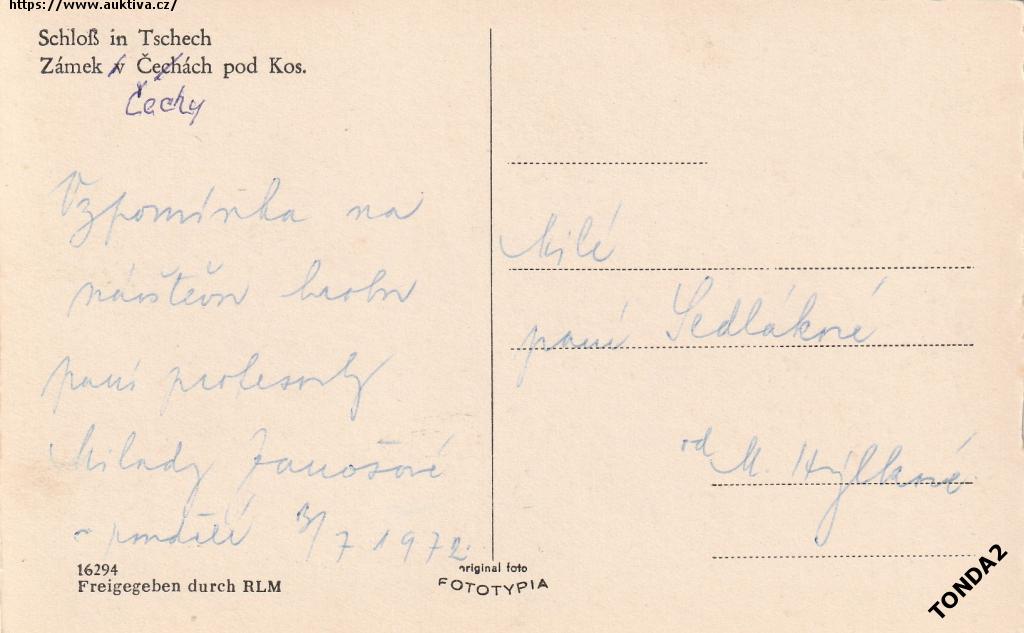 https://www.auktiva.cz/
Schloß in Tschech
Zámek v Čechách pod Kos.
Čechy
Vzpomínka na
návštěvu hrobu
paní profesorky
Milady Janošové
pondělí 3/7 1972
16294
Freigegeben durch RLM
original foto
FOTOTYPIA
Milé
paní Sedlákové
od M. Hýlkové
TONDA2